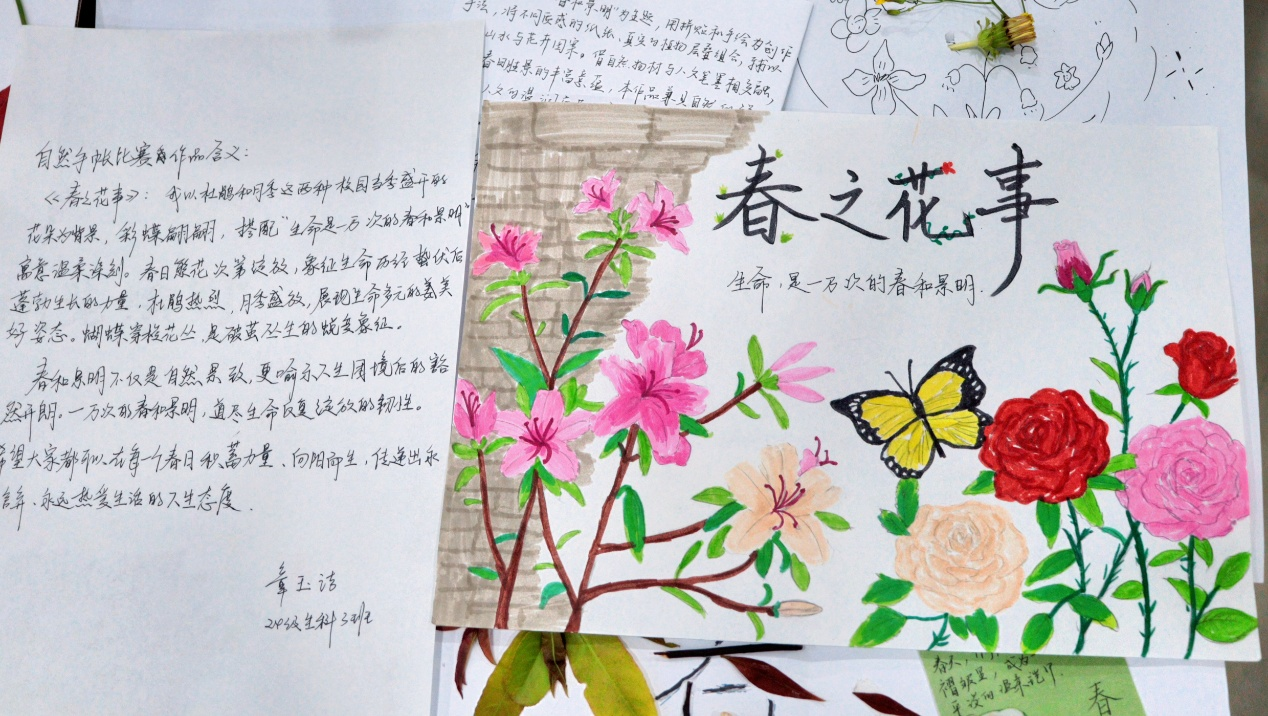 自然手帐比赛作品含义：
《春之花事》：我以杜鹃和月季这两种校园当季盛开的
花朵为背景，彩蝶翩翩，搭配“生命是一万次的春和景明”
寓意温柔深刻。春日繁花次第绽放，象征生命历经蛰伏后
蓬勃生长的力量，杜鹃热烈，月季盛放，展现生命多元的美
好姿态。蝴蝶穿梭花丛，是破茧丛生的蜕变象征。
春和景明不仅是自然景致，更喻示人生困境后的豁
然开朗。一万次的春和景明，道尽生命反复绽放的韧性。
希望大家都可以在每一个春日积蓄力量、向阳而生，传递出永
永远热爱生活的人生态度.
章玉洁
24级生科3班
将不同质感的纸张、真实的植物层叠组合，辅以
山水与花开图案。借自然物材与人文笔墨相交融，
春日胜景的丰富意蕴，本作品兼具自然
春之花事
生命，是一万次的春和景明.
春天，
春